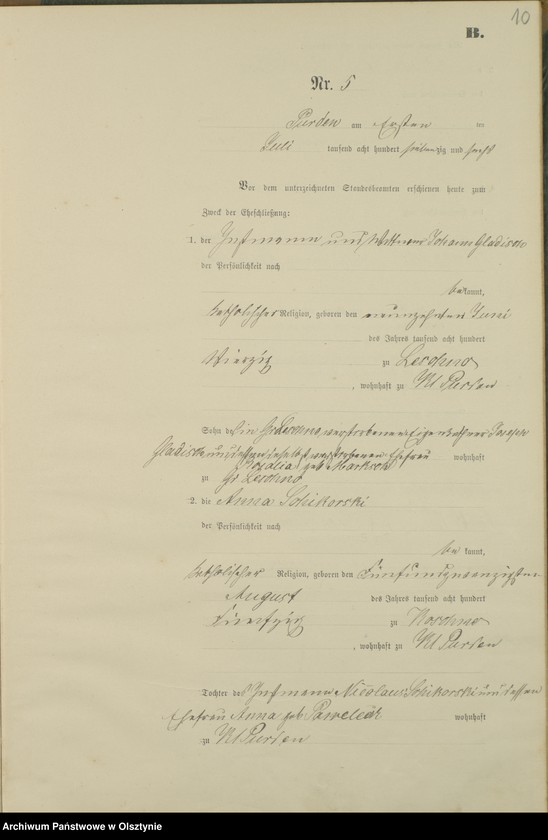 10
B.
Nr. 5
Purden am Ersten ten
Juli tausend acht hundert siebenzig und sechs
Vor dem unterzeichneten Standesbeamten erschienen heute zum
Zweck der Eheschließung:
1. der Instmann und Wittwer Johann Gladisch
der Persönlichkeit nach
be kannt,
katholischer Religion, geboren den neunzehnten Juni
des Jahres tausend acht hundert
Vierzig zu Leschno
, wohnhaft zu Kl Purden
Sohn des in Gr Leschno verstorbenen Eigenkäthner Joseph
Gladisch und dessen daselbst verstorbenen Ehefrau wohnhaft
Rozalia geb
zu Gr Leschno
2. die Anna Schikorski
der Persönlichkeit nach
be kannt,
katholischer Religion, geboren den Fünfundzwanzigsten
August des Jahres tausend acht hundert
Fünfzig zu Koschno
, wohnhaft zu Kl Purden
Tochter des Instmann Nicolaus Schikorski und dessen
Ehefrau Anna geb wohnhaft
zu Kl Purden
Archiwum Państwowe w Olsztynie